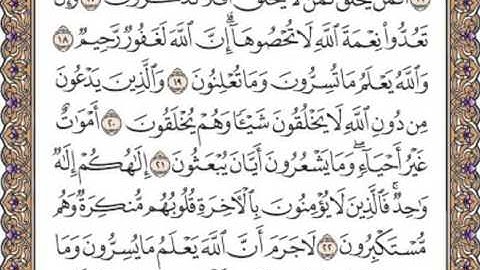 أَفَمَن يَخْلُقُ كَمَن لَّا يَخْلُقُ أَفَلَا تَذَكَّرُونَ ١٧ وَإِن
تَعُدُّوا۟ نِعْمَةَ ٱللَّهِ لَا تُحْصُوهَآ إِنَّ ٱللَّهَ لَغَفُورٌ رَّحِيمٌ ١٨
وَٱللَّهُ يَعْلَمُ مَا تُسِرُّونَ وَمَا تُعْلِنُونَ ١٩ وَٱلَّذِينَ يَدْعُونَ
مِن دُونِ ٱللَّهِ لَا يَخْلُقُونَ شَيْـًٔا وَهُمْ يُخْلَقُونَ ٢٠ أَمْوَٰتٌ
غَيْرُ أَحْيَآءٍ وَمَا يَشْعُرُونَ أَيَّانَ يُبْعَثُونَ ٢١ إِلَٰهُكُمْ إِلَٰهٌ
وَٰحِدٌ فَٱلَّذِينَ لَا يُؤْمِنُونَ بِٱلْءَاخِرَةِ قُلُوبُهُم مُّنكِرَةٌ وَهُم
مُّسْتَكْبِرُونَ ٢٢ لَا جَرَمَ أَنَّ ٱللَّهَ يَعْلَمُ مَا يُسِرُّونَ وَمَا